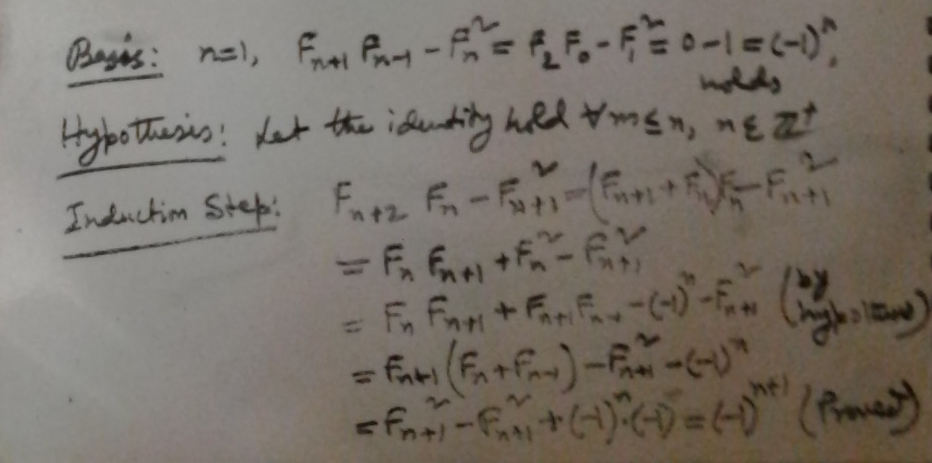 Basis: n=1, F_{n+1} F_{n-1} - F_n^2 = F_2 F_0 - F_1^2 = 0-1 = (-1)^n,
holds
Hypothesis: Let the identity hold ∀m≤n, n∈ℤ⁺
Induction Step: F_{n+2} F_n - F_{n+1}^2 = (F_{n+1} + F_n)F_n - F_{n+1}^2
= F_n F_{n+1} + F_n^2 - F_{n+1}^2
= F_n F_{n+1} + F_{n+1} F_{n-1} - (-1)^n - F_{n+1}^2 (by hypothesis)
= F_{n+1} (F_n + F_{n-1}) - F_{n+1}^2 - (-1)^n
= F_{n+1}^2 - F_{n+1}^2 + (-1)^n·(-1) = (-1)^{n+1} (Proved)